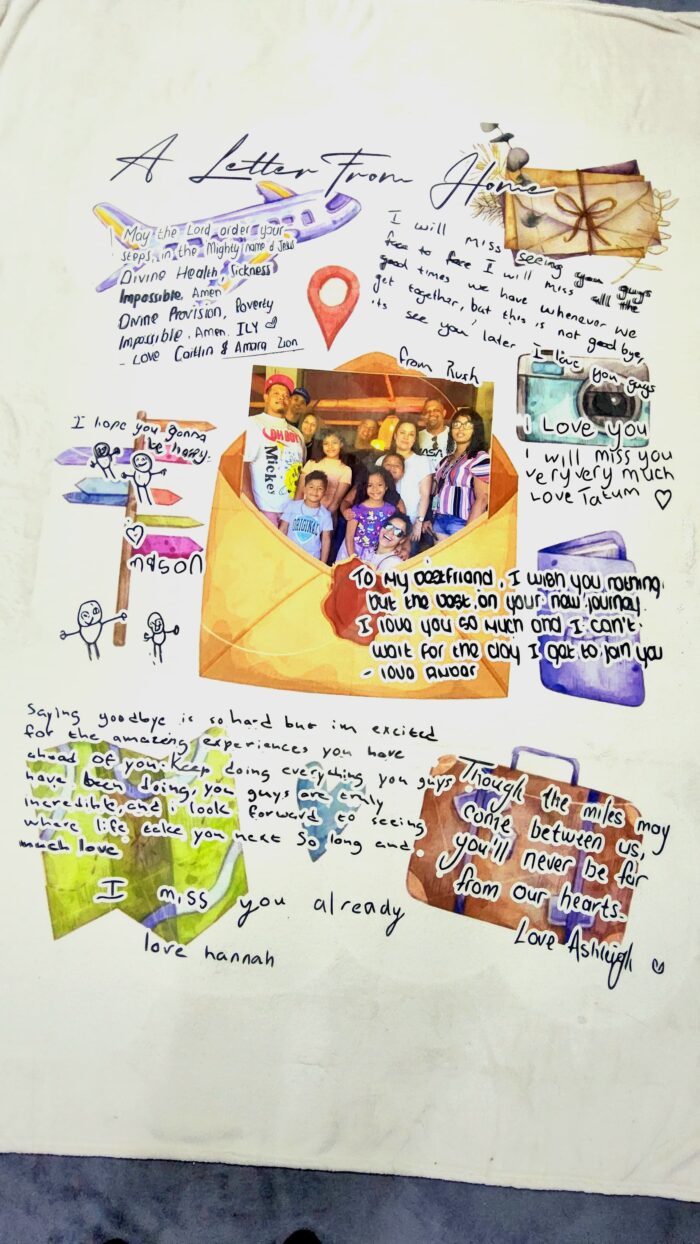 A Letter From Home
May the Lord order your
steps, in the Mighty name of Jesus
Divine Health, Sickness
Impossible, Amen
Divine Provision, Poverty
Impossible. Amen. ILY
- Love Caitlin & Amara Zion
I will miss seeing you guys
face to face I will miss all the
good times we have whenever we
get together, but this is not goodbye,
its see you later I love you guys
from Rush
I hope you gonna
be happy.
I Love you
I will miss you
very very much
Love Tatum
OH BOY!
Mickey
ORIGINAL
To My bestfriend, I wish you nothing
but the best on your new journey.
I love you so much and I can't
wait for the day I get to join you
- love
Saying goodbye is so hard but im excited
for the amazing experiences you have
ahead of you. Keep doing everything you guys
have been doing, you guys are truly
incredible, and i look forward to seeing
where life take you next so long and
much love
I miss you already
love hannah
Though the miles may
come between us,
you'll never be far
from our hearts.
Love Ashleigh